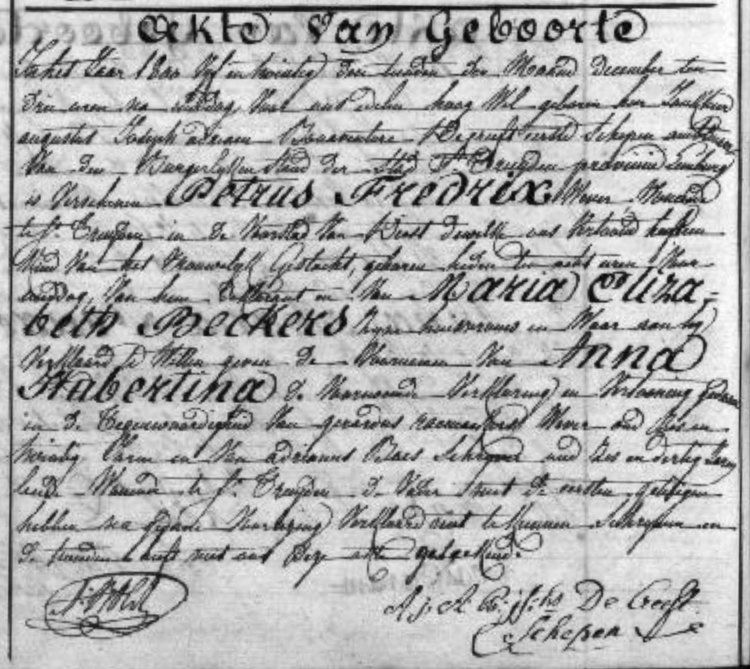 Akte Van Geboorte
In het Jaar 1800 Vyf en twintig den der Maand December ten
drie uren na middag, Voor ons Edelen hoog Wel geboren heer Jonkheer
augustus Joseph adriaen Bonaventure De creeft eerste Schepen
Van den Burgerlyken Stand der Stad St Truyden provincie Limburg
is Verschenen Petrus Fredrix Wever Wonende
te St Truyden in de Voorstad Van dewelke ons Vertoond heeft een
Kind Van het Vrouwelyk Geslacht, geboren heden ten acht uren Voor
middag, Van hem declarant en Van Maria Eliza=
beth Beckers zyne huisvrouw en Waar aan hy
Verklaard te Willen geven de Voornamen Van Anna
Hubertina de Verklaring en Vertooning gedaan
in de Tegenwoordigheid Van gerardus Wever oud Zes en
twintig Jaren en Van adrianus Blaes Schryver oud Zes en dertig Jaren
beide Wonende te St Truyden de Vader met de eersten getuigen
hebben na gedane Voorlezing Verklaard niet te kunnen Schryven en
de tweeden heeft met ons Deze akte getekend.
A. J. A. B. De Creeft
Schepen